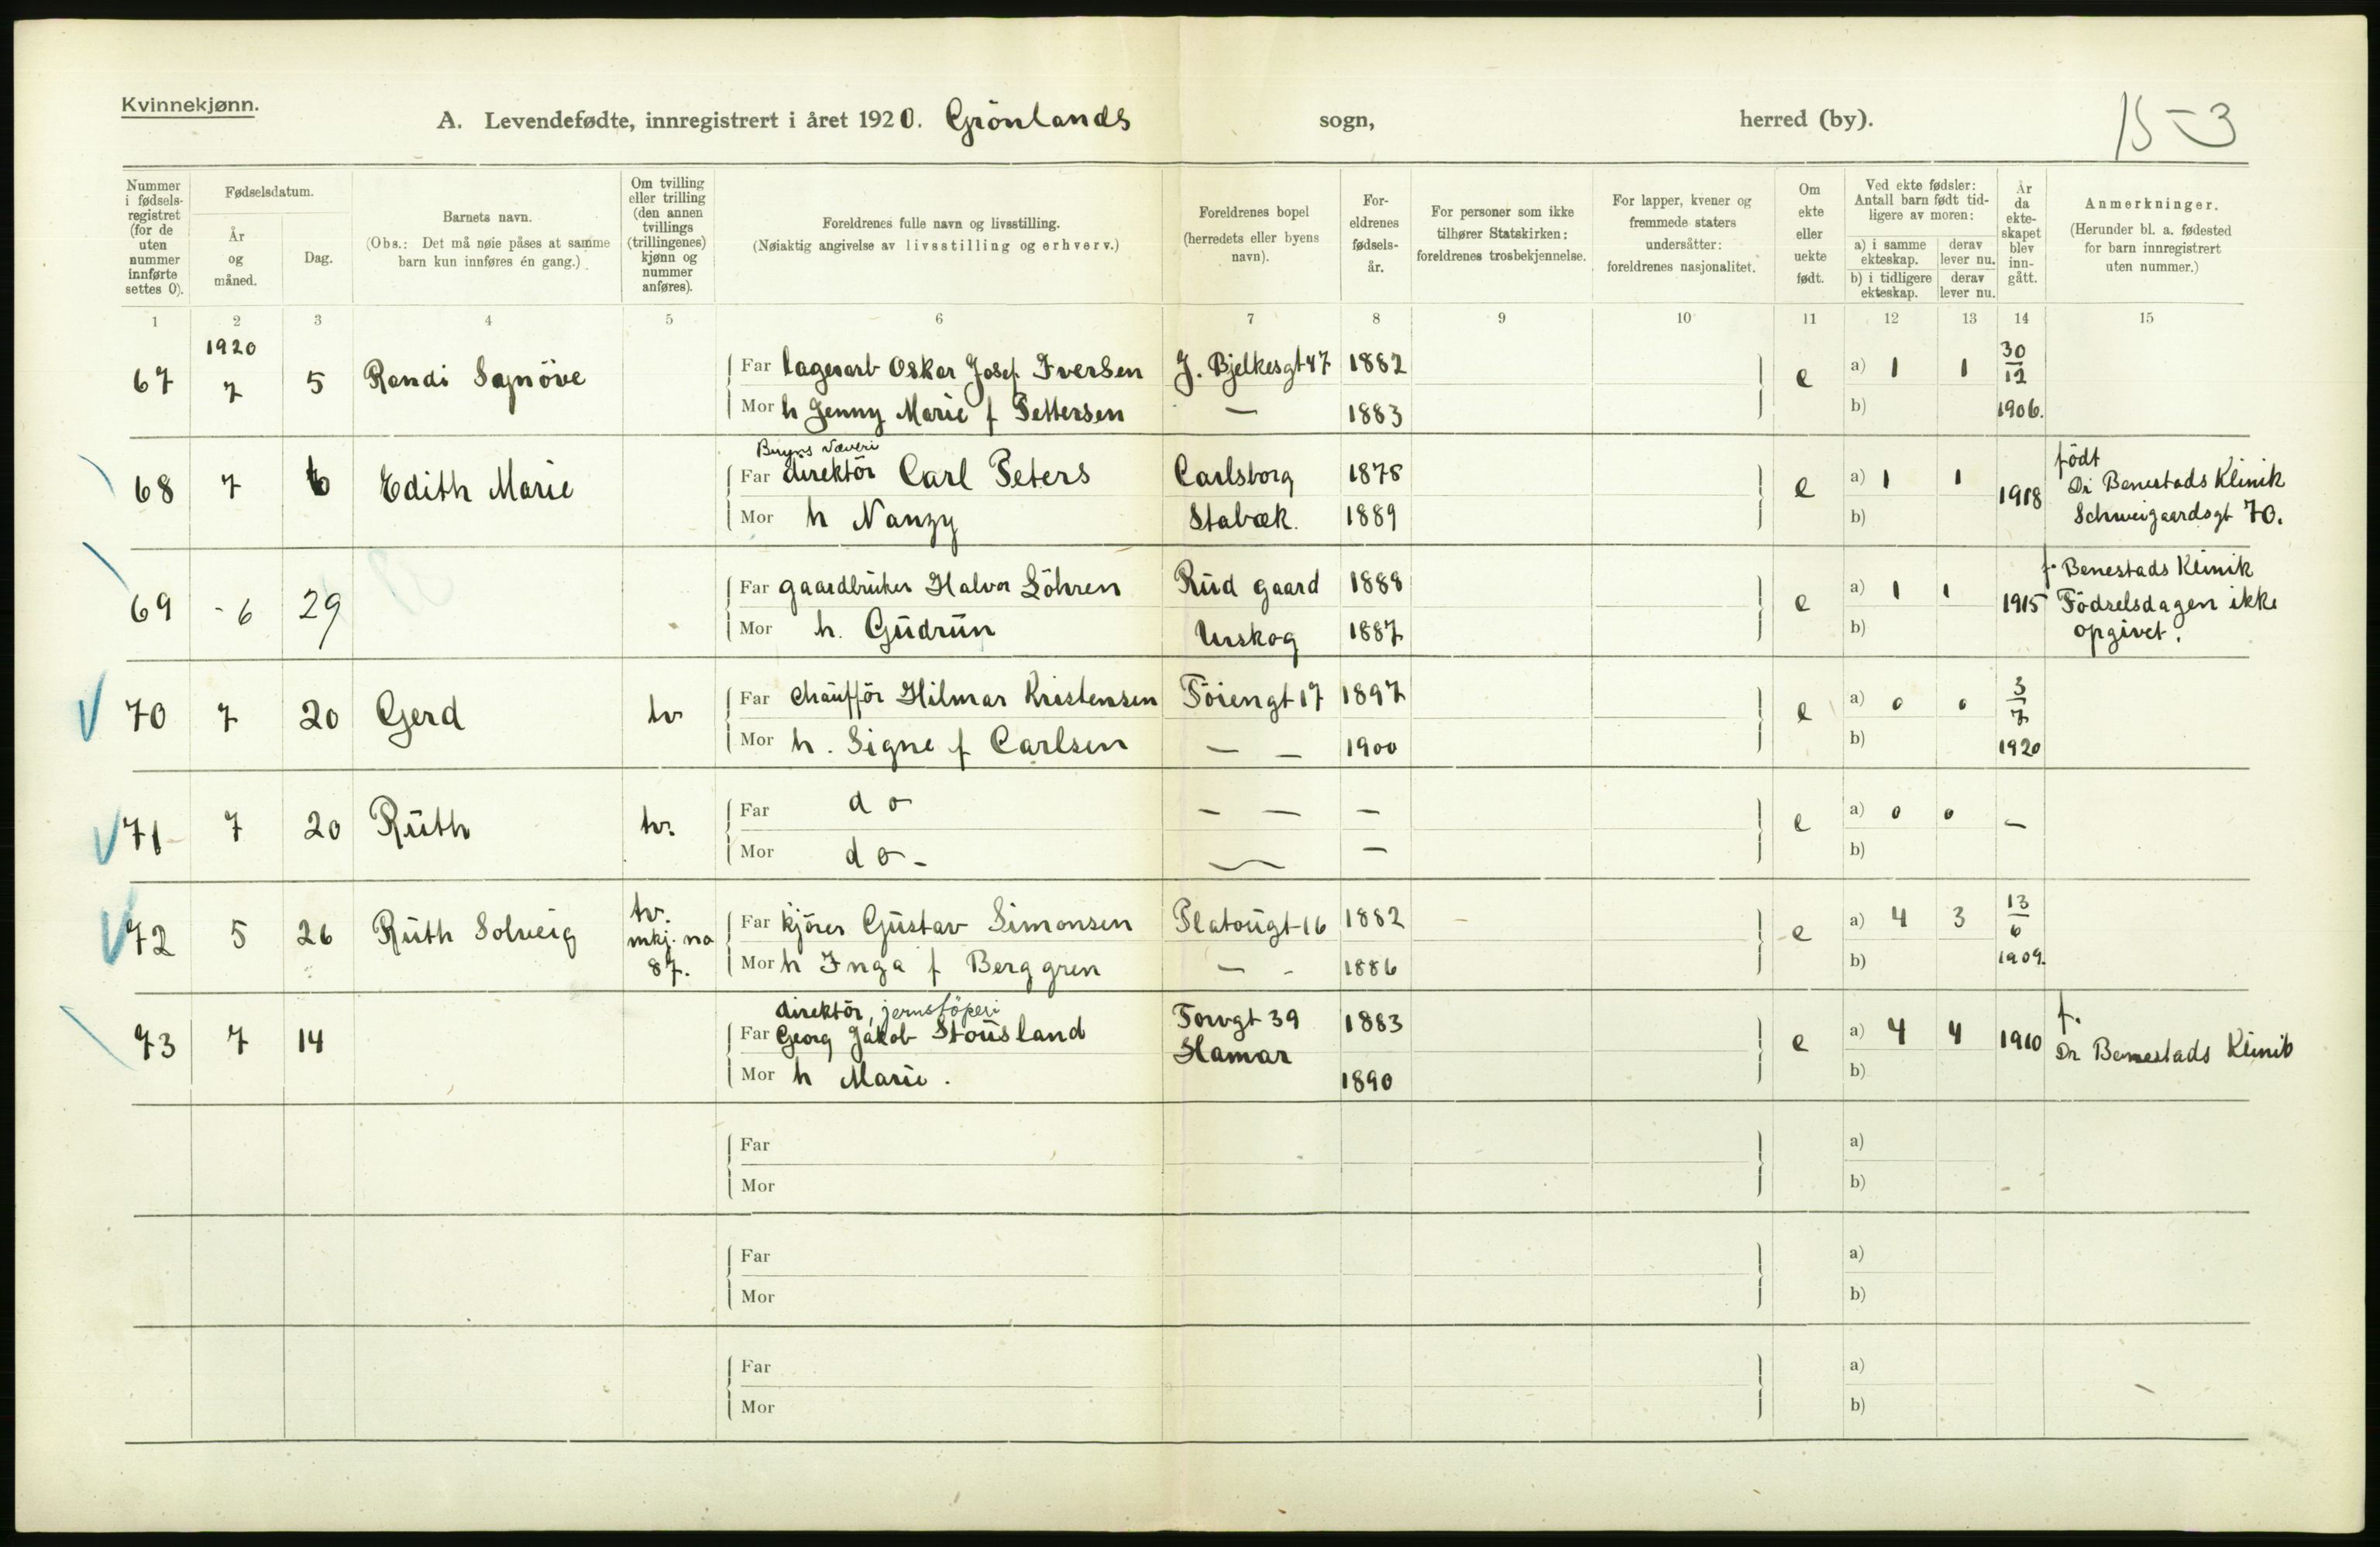 Kvinnekjønn.
A. Levendefødte, innregistrert i året 1920. Grönlands sogn, herred (by). 15-3
Nummer i fødsels-registret (for de uten nummer innførte settes 0).
Fødselsdatum.
År og måned.
Dag.
Barnets navn.
(Obs.: Det må nøie påses at samme barn kun innføres én gang.)
Om tvilling eller trilling (den annen tvillings (trillingenes) kjønn og nummer anføres).
Foreldrenes fulle navn og livsstilling.
(Nøiaktig angivelse av livsstilling og erhverv.)
Foreldrenes bopel (herredets eller byens navn).
For-eldrenes fødsels-år.
For personer som ikke tilhører Statskirken: foreldrenes trosbekjennelse.
For lapper, kvener og fremmede staters undersåtter: foreldrenes nasjonalitet.
Om ekte eller uekte født.
Ved ekte fødsler: Antall barn født tid-ligere av moren:
a) i samme ekteskap. derav lever nu.
b) i tidligere ekteskap. derav lever nu.
År da ekte-skapet blev inn-gått.
Anmerkninger.
(Herunder bl. a. fødested for barn innregistrert uten nummer.)
1 2 3 4 5 6 7 8 9 10 11 12 13 14 15
1920
67 7 5 Randi Synöve Far lagerarb Oskar Josef Iversen J. Bjelkesgt 47 1882 e a) 1 1 30/12
Mor h Jenny Marie f Pettersen — 1883 b) 1906.
Bryns Væveri
68 7 6 Edith Marie Far direktör Carl Peters Carlsborg 1878 e a) 1 1 1918 födt Dr Benestads Klinik
Mor h Nanzy Stabæk. 1889 b) Schweigaardsgt 70.
69 - 6 29 Far gaardbruker Halvor Löhren Rud gaard 1888 e a) 1 1 1915 f. Benestads Klinik
Mor h. Gudrun Urskog 1887 b) Födselsdagen ikke opgivet.
70 7 20 Gerd tv Far chaufför Hilmar Kristensen Töiengt 17 1897 e a) 0 0 3/7
Mor h. Signe f Carlsen — — 1900 b) 1920
71 7 20 Ruth tv. Far do — — — e a) 0 0 —
Mor do - — — b)
72 5 26 Ruth Solveig tv. mkj. no 87. Far kjörer Gustav Simonsen Platougt 16 1882 - e a) 4 3 13/6
Mor h Inga f Berggren — - 1886 b) 1909.
direktör, jernstöperi
73 7 14 Far Georg Jakob Stousland Torvgt 39 1883 e a) 4 4 1910 f. Dr Benestads Klinik
Hamar
Mor h Marie. 1890 b)
Far a)
Mor b)
Far a)
Mor b)
Far a)
Mor b)